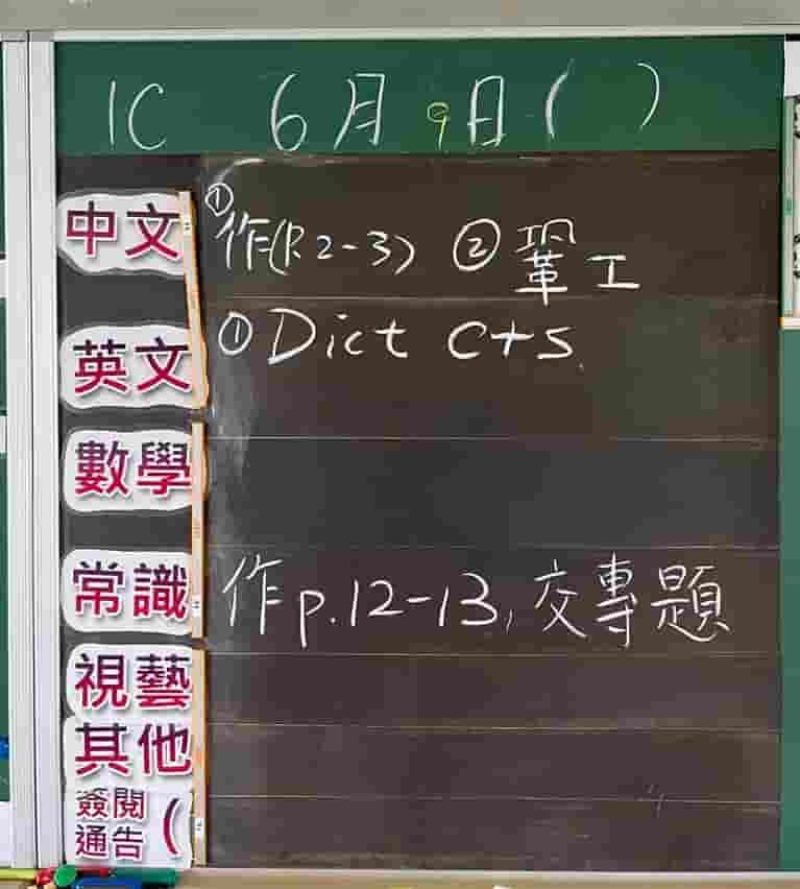 1C 6月9日( )
中文 ①作(P.2-3) ②鞏工
英文 ①Dict C+S
數學
常識 作p.12-13, 交專題
視藝
其他
簽閱
通告 (